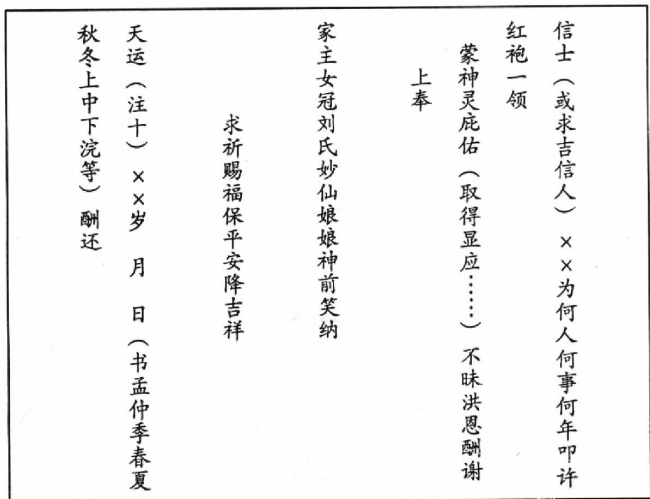 信士（或求吉信人）××为何人何事何年叩许
红袍一领
蒙神灵庇佑（取得显应……）不昧洪恩酬谢
上奉
家主女冠刘氏妙仙娘娘神前笑纳
求祈赐福保平安降吉祥
天运（注十）××岁 月 日（书孟仲季春夏
秋冬上中下浣等）酬还